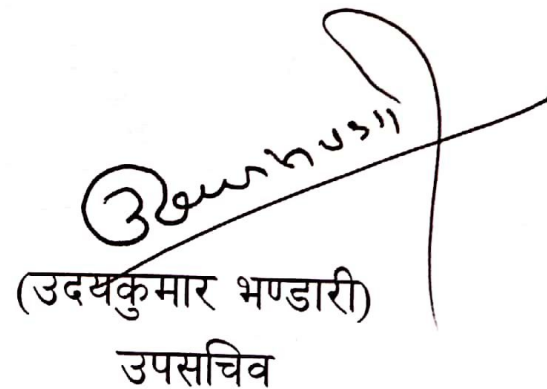 (उदयकुमार भण्डारी)
उपसचिव